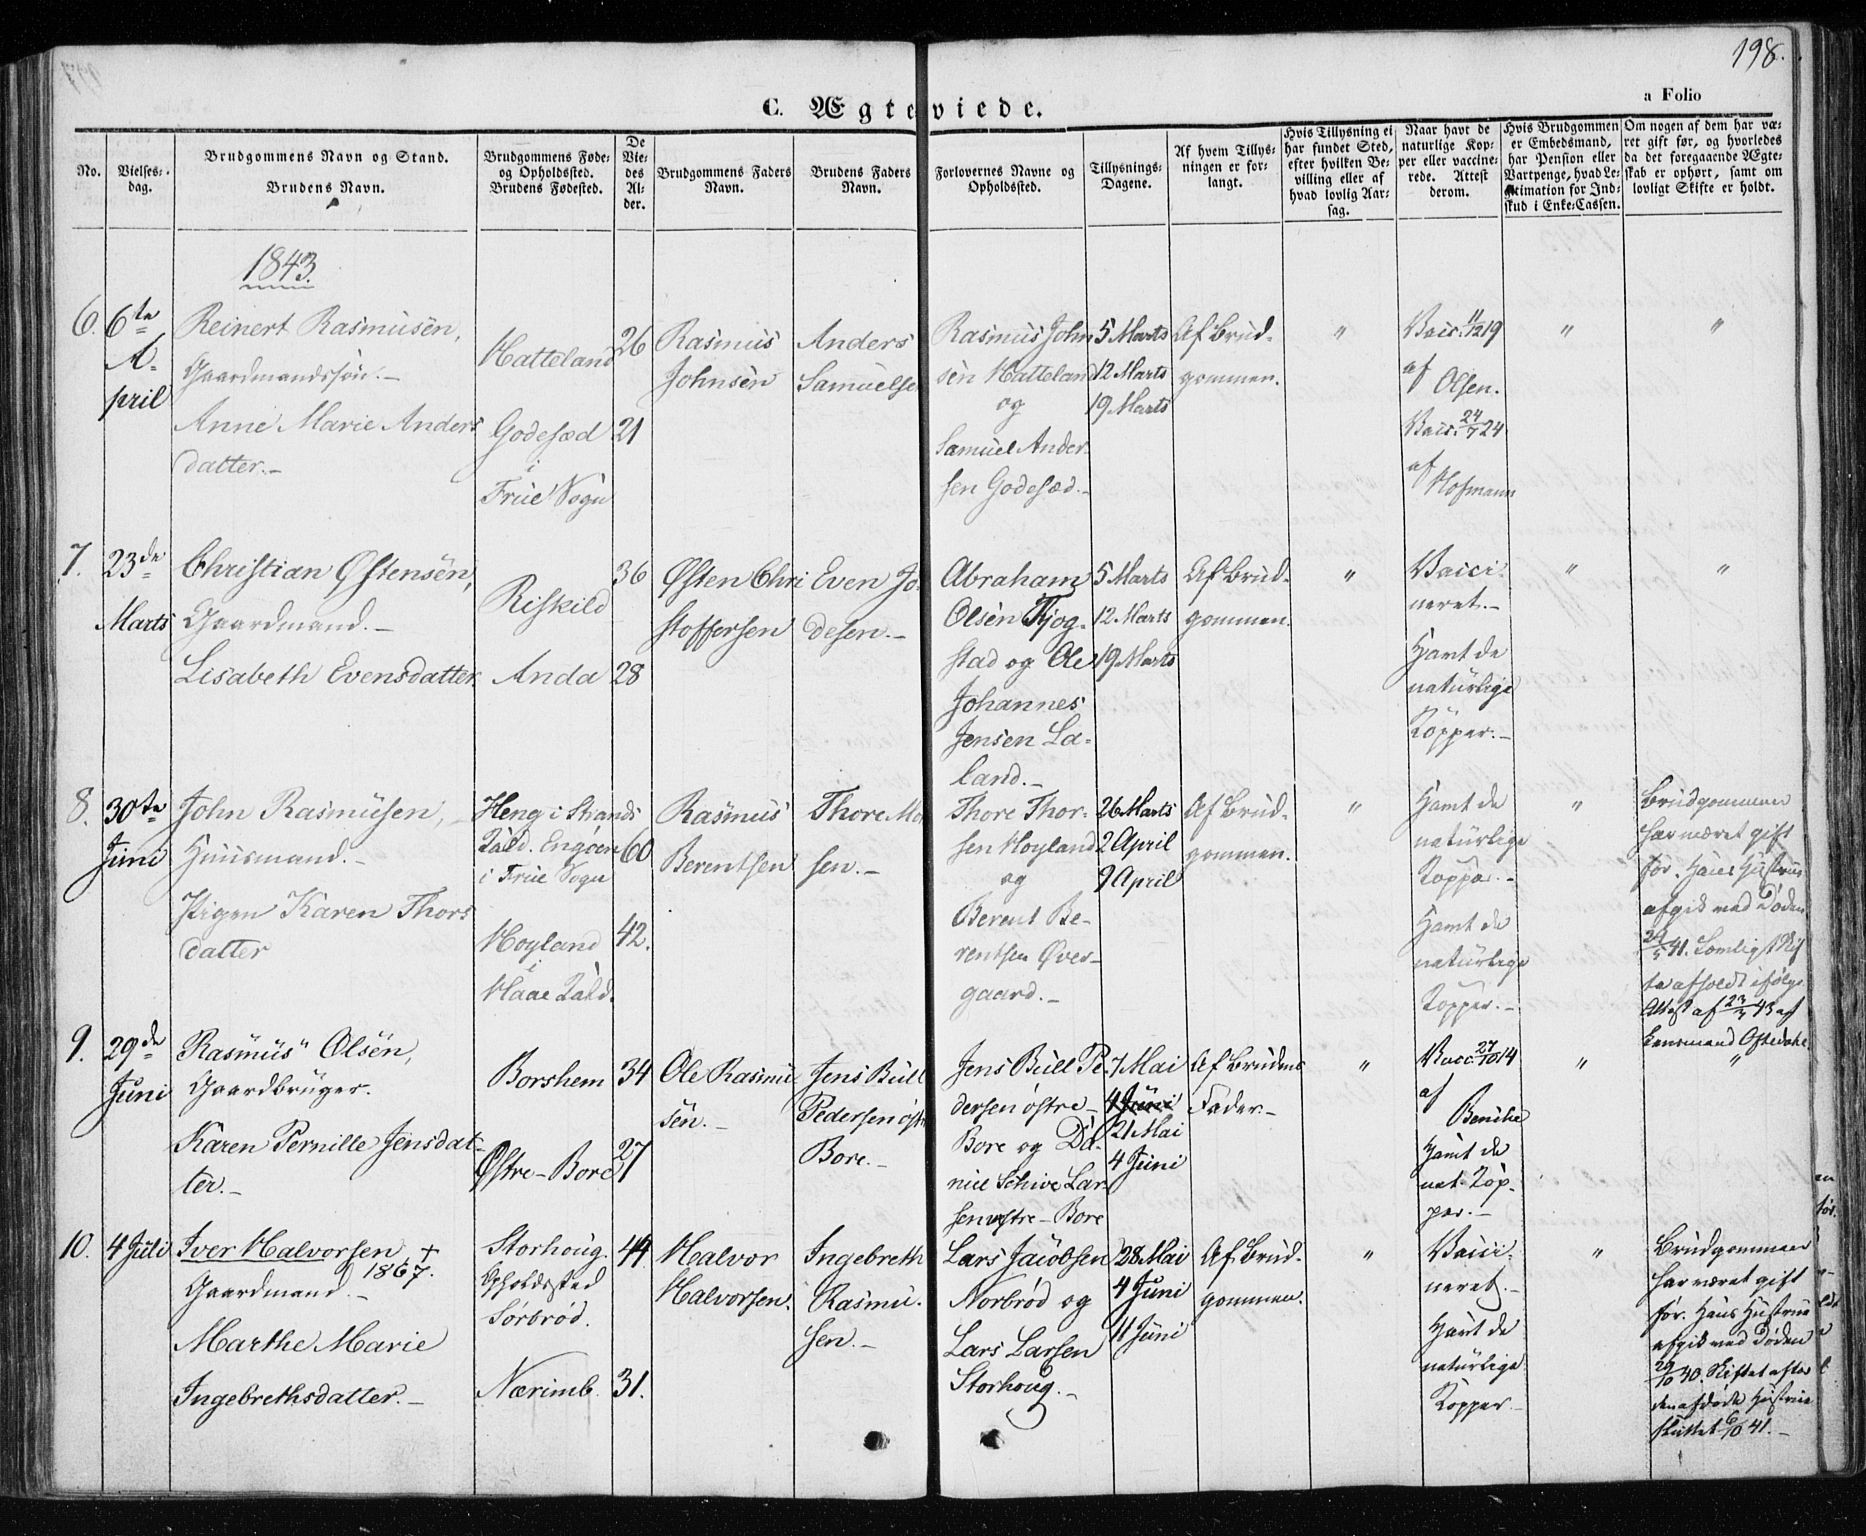 198.
a Folio
C. Ægteviede.
No.
Vielses-dag.
Brudgommens Navn og Stand.
Brudens Navn.
Brudgommens Føde- og Opholdssted.
Brudens Fødested.
De Viedes Alder.
Brudgommens Faders Navn.
Brudens Faders Navn.
Forlovernes Navne og Opholdssted.
Tillysnings-Dagene.
Af hvem Tillysningen er forlangt.
Hvis Tillysning ei har fundet Sted, efter hvilken Bevilling eller af hvad lovlig Aarsag.
Naar havt de naturlige Kopper eller vaccinerede. Attest derom.
Hvis Brudgommen er Embedsmand, har Pension eller Vartpenge, hvad Legitimation for Indskud i Enke-Cassen.
Om nogen af dem har været gift før, og hvorledes da det foregaaende Ægteskab er ophørt, samt om lovligt Skifte er holdt.
1843.
6.
6te
A-
pril
Reinert Rasmusen,
Gaardmandssøn.-
Anne Marie Anders
datter.-
Hatteland
Godesæd
i
Frue Sogn
26
21
Rasmus
Johnsen
Anders
Samuelsen
Rasmus John
sen Hatteland
og
Samuel Ander-
sen Godesæd.-
5 Marts
12 Marts
19 Marts
Af Brud-
gommen.
"
Vacc. 11/12 19
af Olsen.
Vacc. 24/7 24
af
Hofmann
"
"
7.
23de
Marts
Christian Østensen,
Gaardmand.-
Lisabeth Evensdatter
Riskild
Anda
36
28
Østen Chri
stoffersen
Even Jo-
desen.-
Abraham
Olsen Tjog-
stad og Ole
Johannes
Jensen La-
land.-
5 Marts
12 Marts
19 Marts
Af Brud-
gommen.
"
Vacci-
neret.-
Havt de
naturlige
Kopper.-
"
"
8.
30te
Juni
John Rasmusen,
Huusmand.-
Pigen Karen Thors
datter
Heng i Strands
Præld. Engøen
i Frue Sogn
Høyland
i
Haae Præld.
60
42.
Rasmus
Berentsen
Thore
sen.-
Thore Thor-
sen Høyland
og
Berent Be-
rentsen Øver-
gaard.-
26 Marts
2 April
9 April
Af Brud-
gommen.
"
Havt de
naturlige
Kopper.-
Havt de
naturlige
Kopper.-
"
Brudgommen
har været gift
før. Hans Hustrue
afgik ved Døden
/5 41. Lovligt Skif
te afholdt ifølge
Attest af 23/ 43 af
Lensmand Oftedahl.
9.
29de
Juni
Rasmus Olsen,
Gaardbruger.
Karen Pernille Jensdat-
ter.-
Borshem
Østre-Bore
34
27
Ole Rasmu
sen.-
Jens Bull
Pedersen østre
Bore.-
Jens Bull Pe-
dersen østre-
Bore og Da-
niel Schive Lar-
sen østre-Bore
7 Mai
4 Juni
21 Mai
4 Juni
Af Brudens
Fader-
"
Vacc. 27/10 14
af
Benche
Havt de
nat. Kop-
per.-
"
"
10.
4 Juli
Iver Halvorsen +
1867.
Gaardmand.-
Marthe Marie
Ingebrethsdatter.-
Storhoug.
Opholdssted
Sørbrød.
Nærimb.
44
31.
Halvor
Halvorsen.
Ingebreth
Rasmu-
sen.-
Lars Jacobsen
Norbrød og
Lars Larsen
Storhoug.-
28 Mai
4 Juni
11 Juni
Af Brud-
gommen.
"
Vacci-
neret.-
Havt de
naturlige
Kopper-
"
Brudgommen
har været gift
før. Hans Hustrue
afgik ved Døden
29/10 40. Skiftet efter
den afdøde Hustrue
sluttet 6/10 41.-